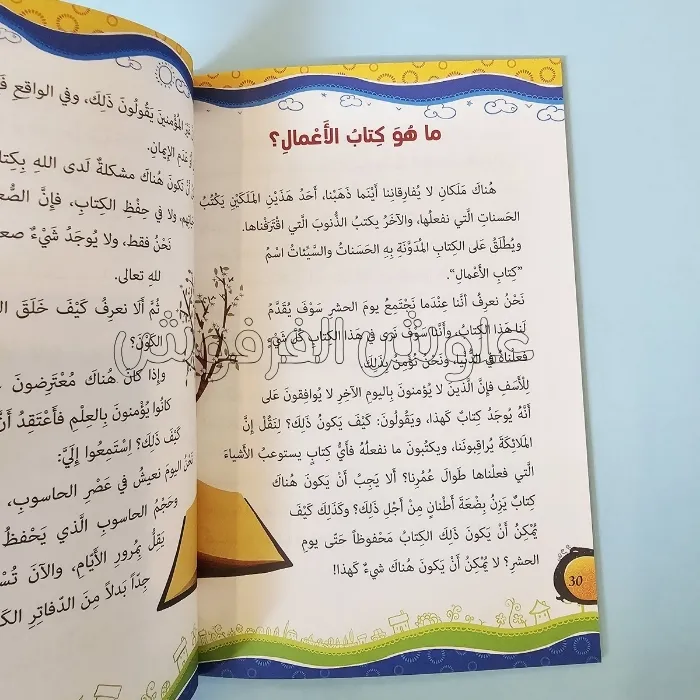 ما هُوَ كِتابُ الأَعْمالِ؟
هُناكَ مَلَكانِ لا يُفارِقانِنا أَيْنَما ذَهَبْنا، أَحَدُ هَذَيْنِ المَلَكَيْنِ يَكْتُبُ
الحَسناتِ الَّتي نفعلُها، والآخَرُ يكتبُ الذُّنوبَ الَّتي اقْتَرَفْناها.
ويُطْلَقُ عَلى الكِتابِ المُدَوَّنَةِ بِهِ الحَسَناتُ والسَّيِّئاتُ اسْمُ
"كِتابِ الأَعْمالِ".
نَحْنُ نعرِفُ أنَّنا عِنْدَما نَجْتَمِعُ يومَ الحشرِ سَوْفَ يُقَدَّمُ
لنا هَذا الكِتابُ، وأَنَّنا سَوْفَ نَرَى في هَذا الكِتابِ كُلَّ شَيْءٍ
فعلناهُ في الدُّنيا، ونَحْنُ نُؤْمِنُ بِذَلِكَ
لِلْأَسَفِ فإِنَّ الَّذينَ لا يُؤْمِنونَ بِاليومِ الآخِرِ لا يُوافِقونَ عَلى
أَنَّهُ يُوجَدُ كِتابٌ كَهذا، ويَقُولُونَ: كَيْفَ يَكونُ ذَلِكَ؟ لِنَقُلْ إِنَّ
المَلائِكَةَ يُراقِبونَنا، ويكتُبونَ ما نفعلُهُ فأَيُّ كِتابٍ يستوعِبُ الأَشْياءَ
الَّتي فعلْناها طَوالَ عُمُرِنا؟ أَلا يَجِبُ أَنْ يَكونَ هُناكَ
كِتابٌ يَزِنُ بِضْعَةَ أَطْنانٍ مِنْ أَجْلِ ذَلِكَ؟ وكَذَلِكَ كَيْفَ
يُمْكِنُ أَنْ يَكونَ ذَلِكَ الكِتابُ مَحْفوظاً حَتَّى يومِ
الحشرِ؟ لا يُمْكِنُ أَنْ يَكونَ هُناكَ شيءٌ كَهذا!
30
المُؤْمنينَ يَقُولُونَ ذَلِكَ، وفي الواقِعِ
عَدَمِ الإِيمانِ.
أَنْ يَكونَ هُناكَ مشكلةٌ لَدى اللهِ
ولا في حِفْظِ الكِتابِ، فإِنَّ
نَحْنُ فقط، ولا يُوجَدُ شَيْءٌ
للهِ تعالى.
ثُمَّ أَلا نعرِفُ كَيْفَ خَلَقَ
الكَوْنَ؟
وإذا كانَ هُناكَ مُعْتَرِضونَ
كانُوا يُؤْمنونَ بِالعِلْمِ فأَعْتَقِدُ
كَيْفَ ذَلِكَ؟ اِسْتَمِعُوا إِلَيَّ:
نَحْنُ اليومَ نعيشُ في عَصْرِ الحاسوبِ،
وحَجْمُ الحاسوبِ الَّذي يَحْفَظُ
يَقِلُّ بِمُرورِ الأَيَّامِ، والآنَ
جِدّاً بَدلاً مِنَ الدّفاترِ
علوش الفرفوش